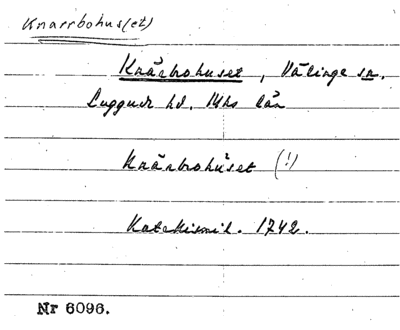 Knarrbohus(et)
Knärbohuset, Välinge sn.
Luggude hd. Mhs län
Knärbohuset (!)
Katekismil. 1742.
Nr 6096.